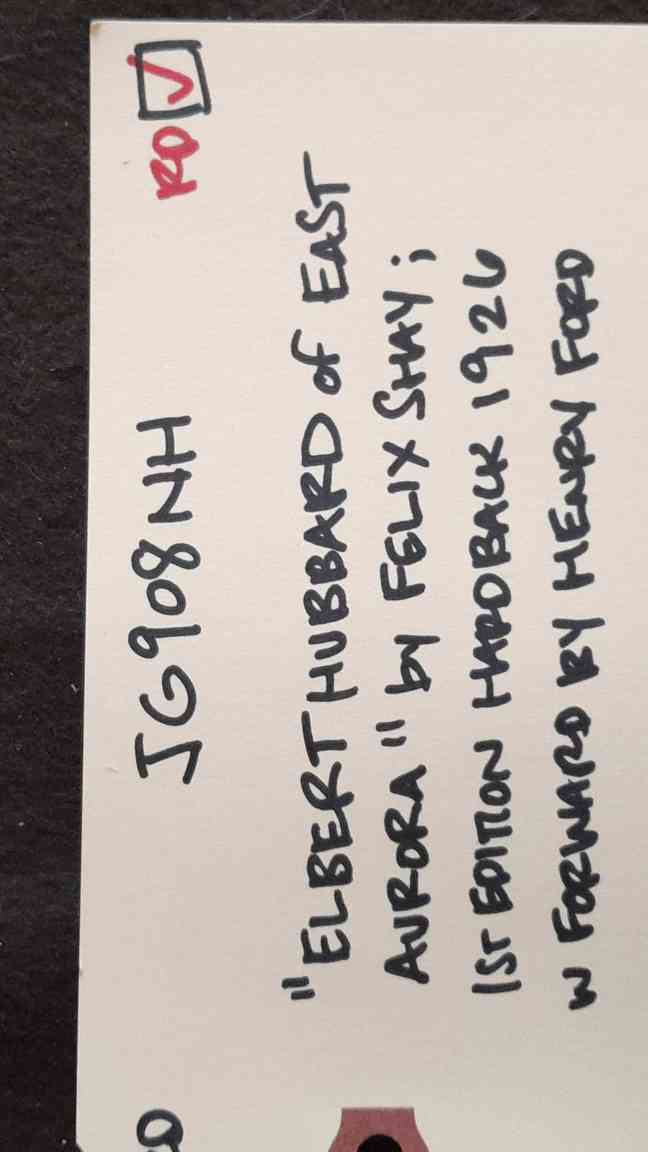 JG908NH RD
"ELBERT HUBBARD of EAST
AURORA" by FELIX SHAY;
1ST EDITION HARDBACK 1926
W FORWARD BY HENRY FORD